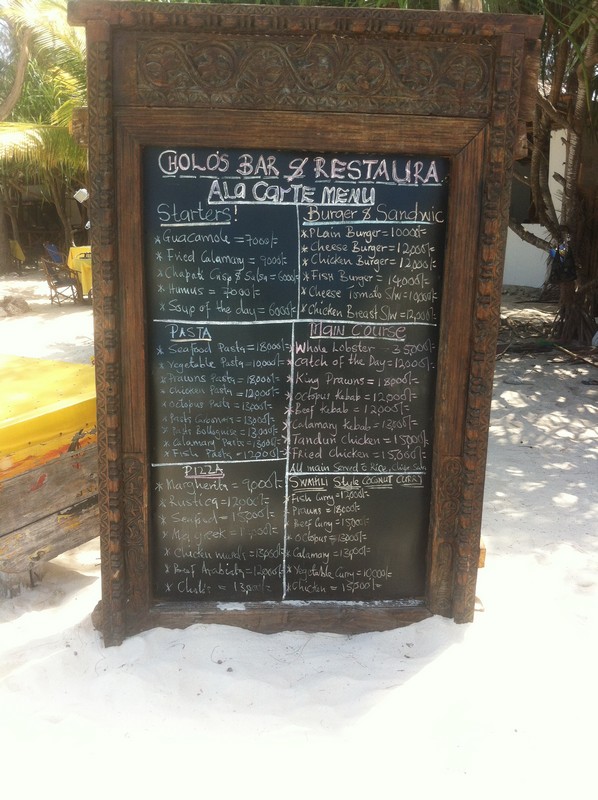 CHOLO'S BAR & RESTAURA
Ala Carte MENU
Starters!
* Guacamole = 7000/=
* Fried Calamary = 9000/=
* Chapati Crisp & Salsa = 6000/=
* Humus = 7000/=
* Soup of the day = 6000/=
Burger & Sandwic
* Plain Burger = 10000/=
* Cheese Burger = 12,000/=
* Chicken Burger = 12,000/=
* Fish Burger = 14,000/=
* Cheese Tomato S/w = 10,000/=
* Chicken Breast S/w = 12,000/=
PASTA
* Seafood Pasta = 18000/=
* Vegetable Pasta = 10000/=
* Prawns Pasta = 18,000/=
* Chicken Pasta = 12,000/=
* Octopus Pasta = 13000/=
* Pasta = 13000/=
* Pasta Bolognaise = 13,000/=
* Calamary Pasta = 13,000/=
* Fish Pasta = 12000/=
Main Course
Whole Lobster 35,000/=
Catch of the Day = 12000/=
* King Prawns = 18000/=
* Octopus Kebab = 12,000/=
* Beef Kebab = 12000/=
* Calamary Kebab = 13000/=
* Tanduri Chicken = 15000/=
* Fried Chicken = 15,000/=
All main Served &  Rice, Chips,
PIZZA
* Margherita = 9,000/=
* Rustica = 12000/=
* Seafood = 15000/=
*
* Chicken = 13000/=
* Beef Arabiata = 12,000/=
* = 13,000/=
SWAHILI Style COCONUT CURRY
* Fish Curry = 12000/=
* Prawns = 18000/=
* Beef Curry = 15000/=
* Octopus = 13000/=
* Calamary = 13,000/=
* Vegetable Curry = 10,000/=
* Chicken = 15,000/=